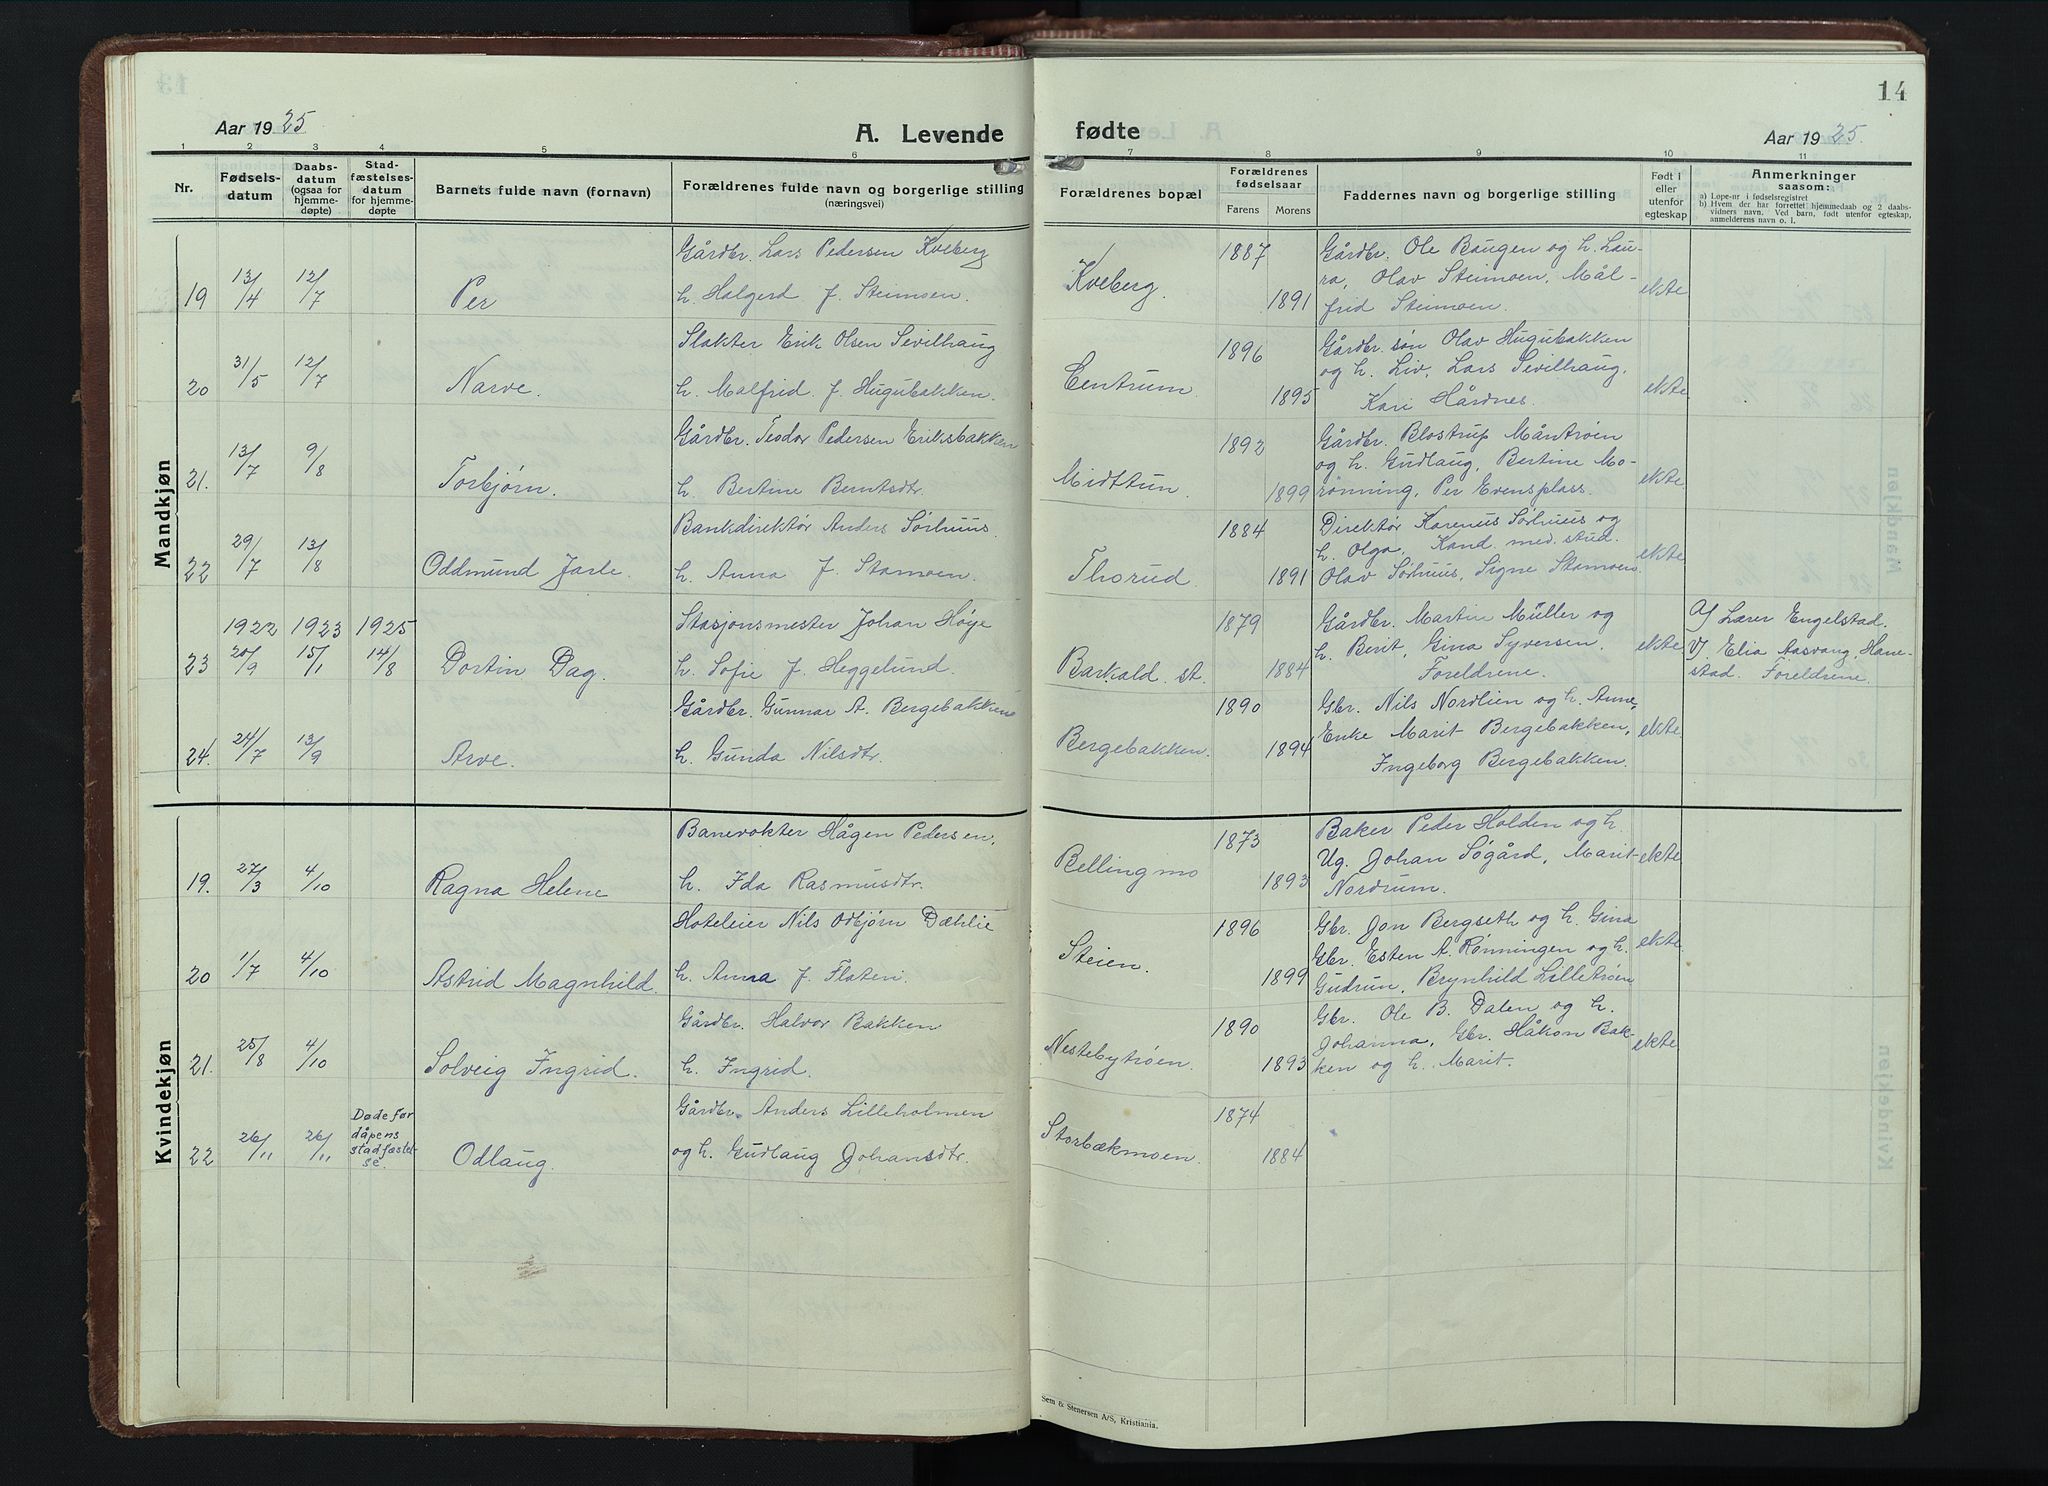 14
Aar 1925
A. Levende fødte
Aar 1925
1 2 3 4 5 6 7 8 9 10 11
Nr.
Fødsels-
datum
Daabs-
datum
(ogsaa for
hjemme-
døpte)
Stad-
fæstelses-
datum
for hjemme-
døpte
Barnets fulde navn (fornavn)
Forældrenes fulde navn og borgerlige stilling
(næringsvei)
Forældrenes bopæl
Forældrenes
fødselsaar
Farens Morens
Faddernes navn og borgerlige stilling
Født i
eller
utenfor
egteskap
Anmerkninger
saasom:
a) Løpe-nr i fødselsregistret
b) Hvem der har forrettet hjemmedaab og 2 daabs-
vidners navn. Ved barn, født utenfor egteskap,
anmelderens navn o. l.
Mandkjøn
19 13/4 12/7 Per
Gårdbr. Lars Pedersen Kveberg
h. Halgerd f. Steimoen.
Kveberg. 1887 1891
Gårdbr. Ole Baugen og h. Lau-
ra, Olav Steimoen, Mål-
frid Steimoen.
ekte
20 31/5 12/7 Narve.
Slakter Erik Olsen Sevilhaug
h. Malfrid f. Hugubakken.
Centrum 1896 1895
Gårdbr. søn Olav Hugubakken
og h. Liv, Lars Sevilhaug,
Kari Hårdnes.
ekte
21. 13/7 9/8 Torbjørn.
Gårdbr. Teodor Pedersen Eriksbakken
h. Bertine Berntsdtr.
Midttun. 1892 1899
Gårdbr. Blostrup Måntrøen
og h. Gudlaug, Bertine Mo-
rønning, Per Evensplass.
ekte
22 29/7 13/8 Oddmund Jarle.
Bankdirektør Anders Sørhuus.
h. Anna f. Stamoen.
Thorud. 1884 1891
Direktør Karenus Sørhuus og
h. Olga, Kand. med. stud.
Olav Sørhuus, Signe Stamoen
ekte
23 1922 20/9 1923 15/1 1925 14/8 Dortin Dag.
Stasjonsmester Johan Høye
h. Sofie f. Heggelund.
Barkald st. 1879 1884
Gårdbr. Martin Müller og
h. Berit, Gina Syversen.
Foreldrene.
ekte
Af Lærer Engelstad.
Vf Elia Aasvang, Hane-
stad. Foreldrene.
24. 24/7 13/9 Arve.
Gårdbr. Gunnar A. Bergebakken
h. Gunda Nilsdtr.
Bergebakken. 1890 1894
Gbr. Nils Nordlien og h. Anne,
Enke Marit Bergebakken,
Ingeborg Bergebakken.
ekte
Kvindekjøn
19. 27/3 4/10 Ragna Helene
Banevokter Hågen Pedersen,
h. Ida Rasmusdtr.
Bellingmo 1873 1893
Baker Peder Holden og h.
Ug. Johan Søgård, Marit
Nordrum.
ekte
20 1/7 4/10 Astrid Magnhild.
Hoteleier Nils Odbjørn Dæhlie
h. Anna f. Flaten.
Steien. 1896 1899
Gbr. Jon Bergseth og h. Gina
Gbr. Esten A. Rønningen og h.
Gudrun, Brynhild Lilletrøen
ekte
21. 25/8 4/10 Solveig Ingrid.
Gårdbr. Halvor Bakken
h. Ingrid.
Nestebytrøen. 1890 1893
Gbr. Ole B. Dalen og h.
Johanna, Gbr. Håkon Bak-
ken og h. Marit.
ekte
22 26/11 26/11
Døde før
dåpens
stadfæstel-
se.
Odlaug.
Gårdbr. Anders Lilleholmen
og h. Gudlaug Johansdtr.
Storbækmoen. 1874 1884
Sem & Stenersen A/S, Kristiania.